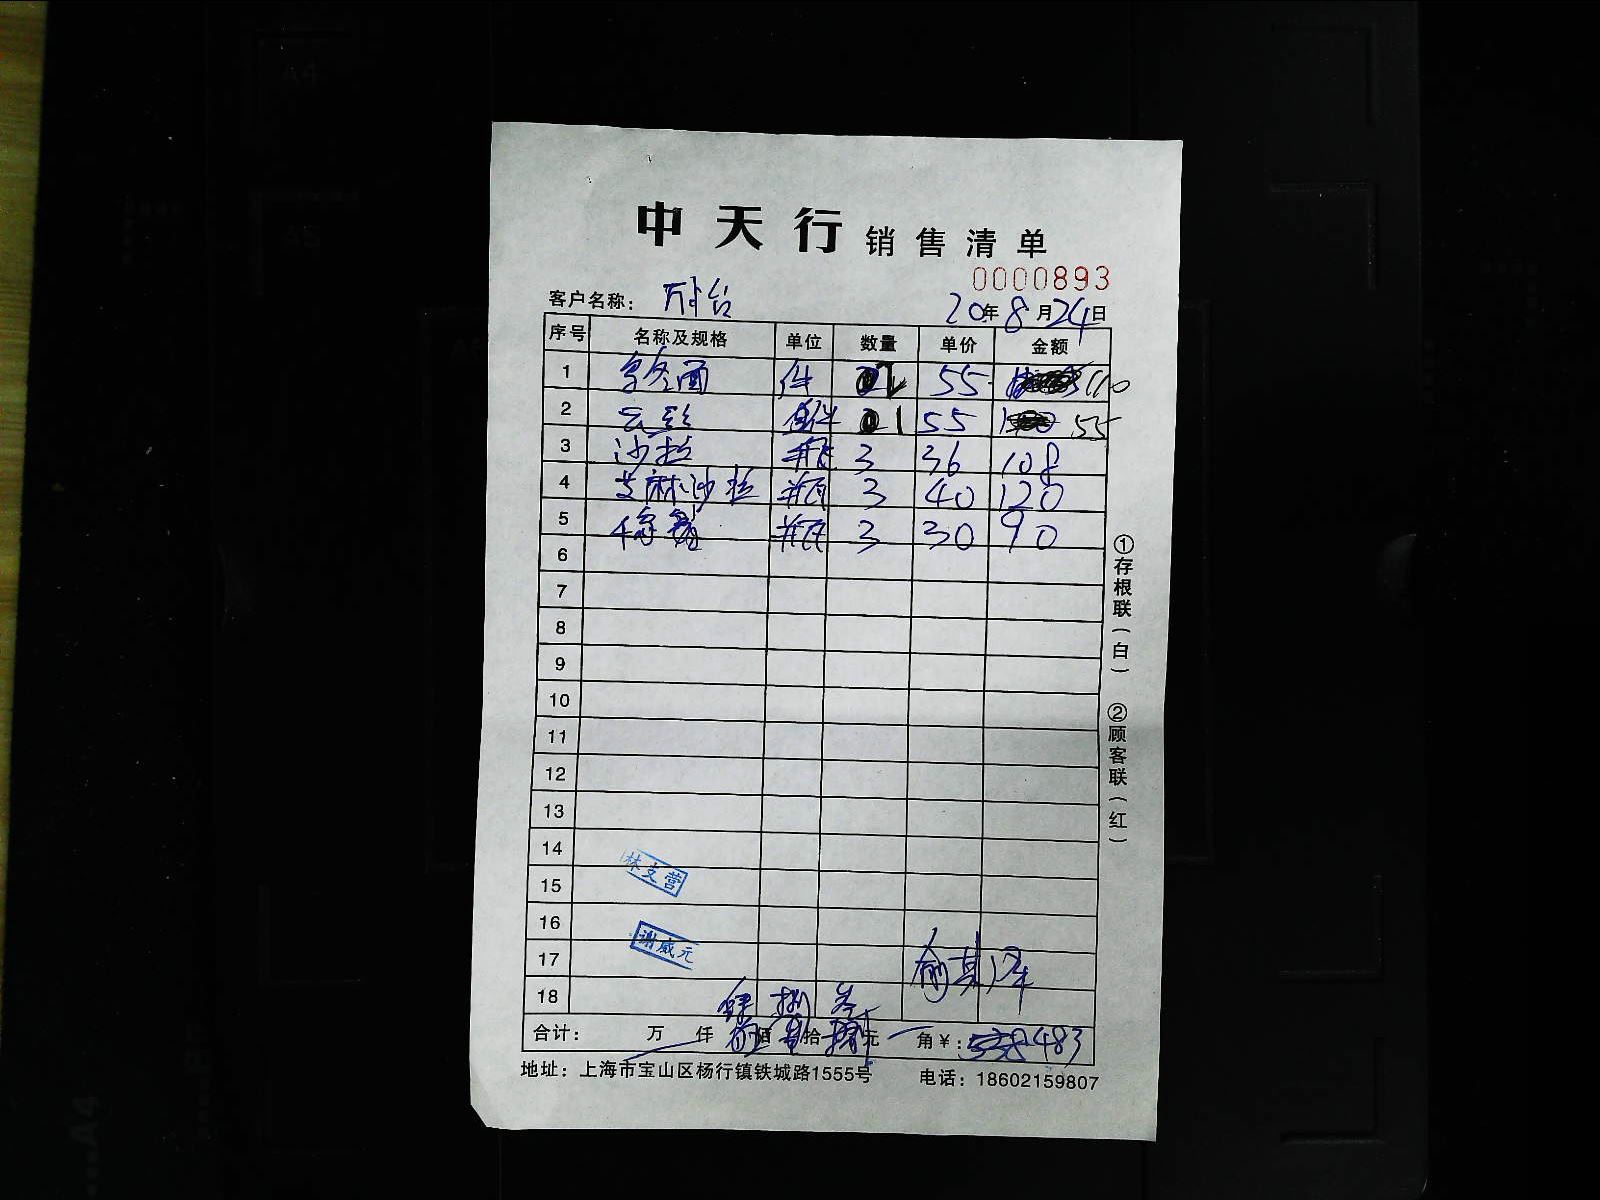 中天行 销售清单
0000893
客户名称: 20年8月24日
序号 名称及规格 单位 数量 单价 金额
1 乌冬面 件 2 55 110
2 云丝 件 1 55 55
3 沙拉 瓶 3 36 108
4 芝麻沙拉 瓶 3 40 120
5 瓶 3 30 90
6
7
8
9
10
11
12
13
14
15
16
17
18
林支营
谢威元
肆 捌 叁
合计: 万 仟 佰 拾 元 角 ¥: 483
地址: 上海市宝山区杨行镇铁城路1555号 电话: 18602159807
①存根联(白) ②顾客联(红)